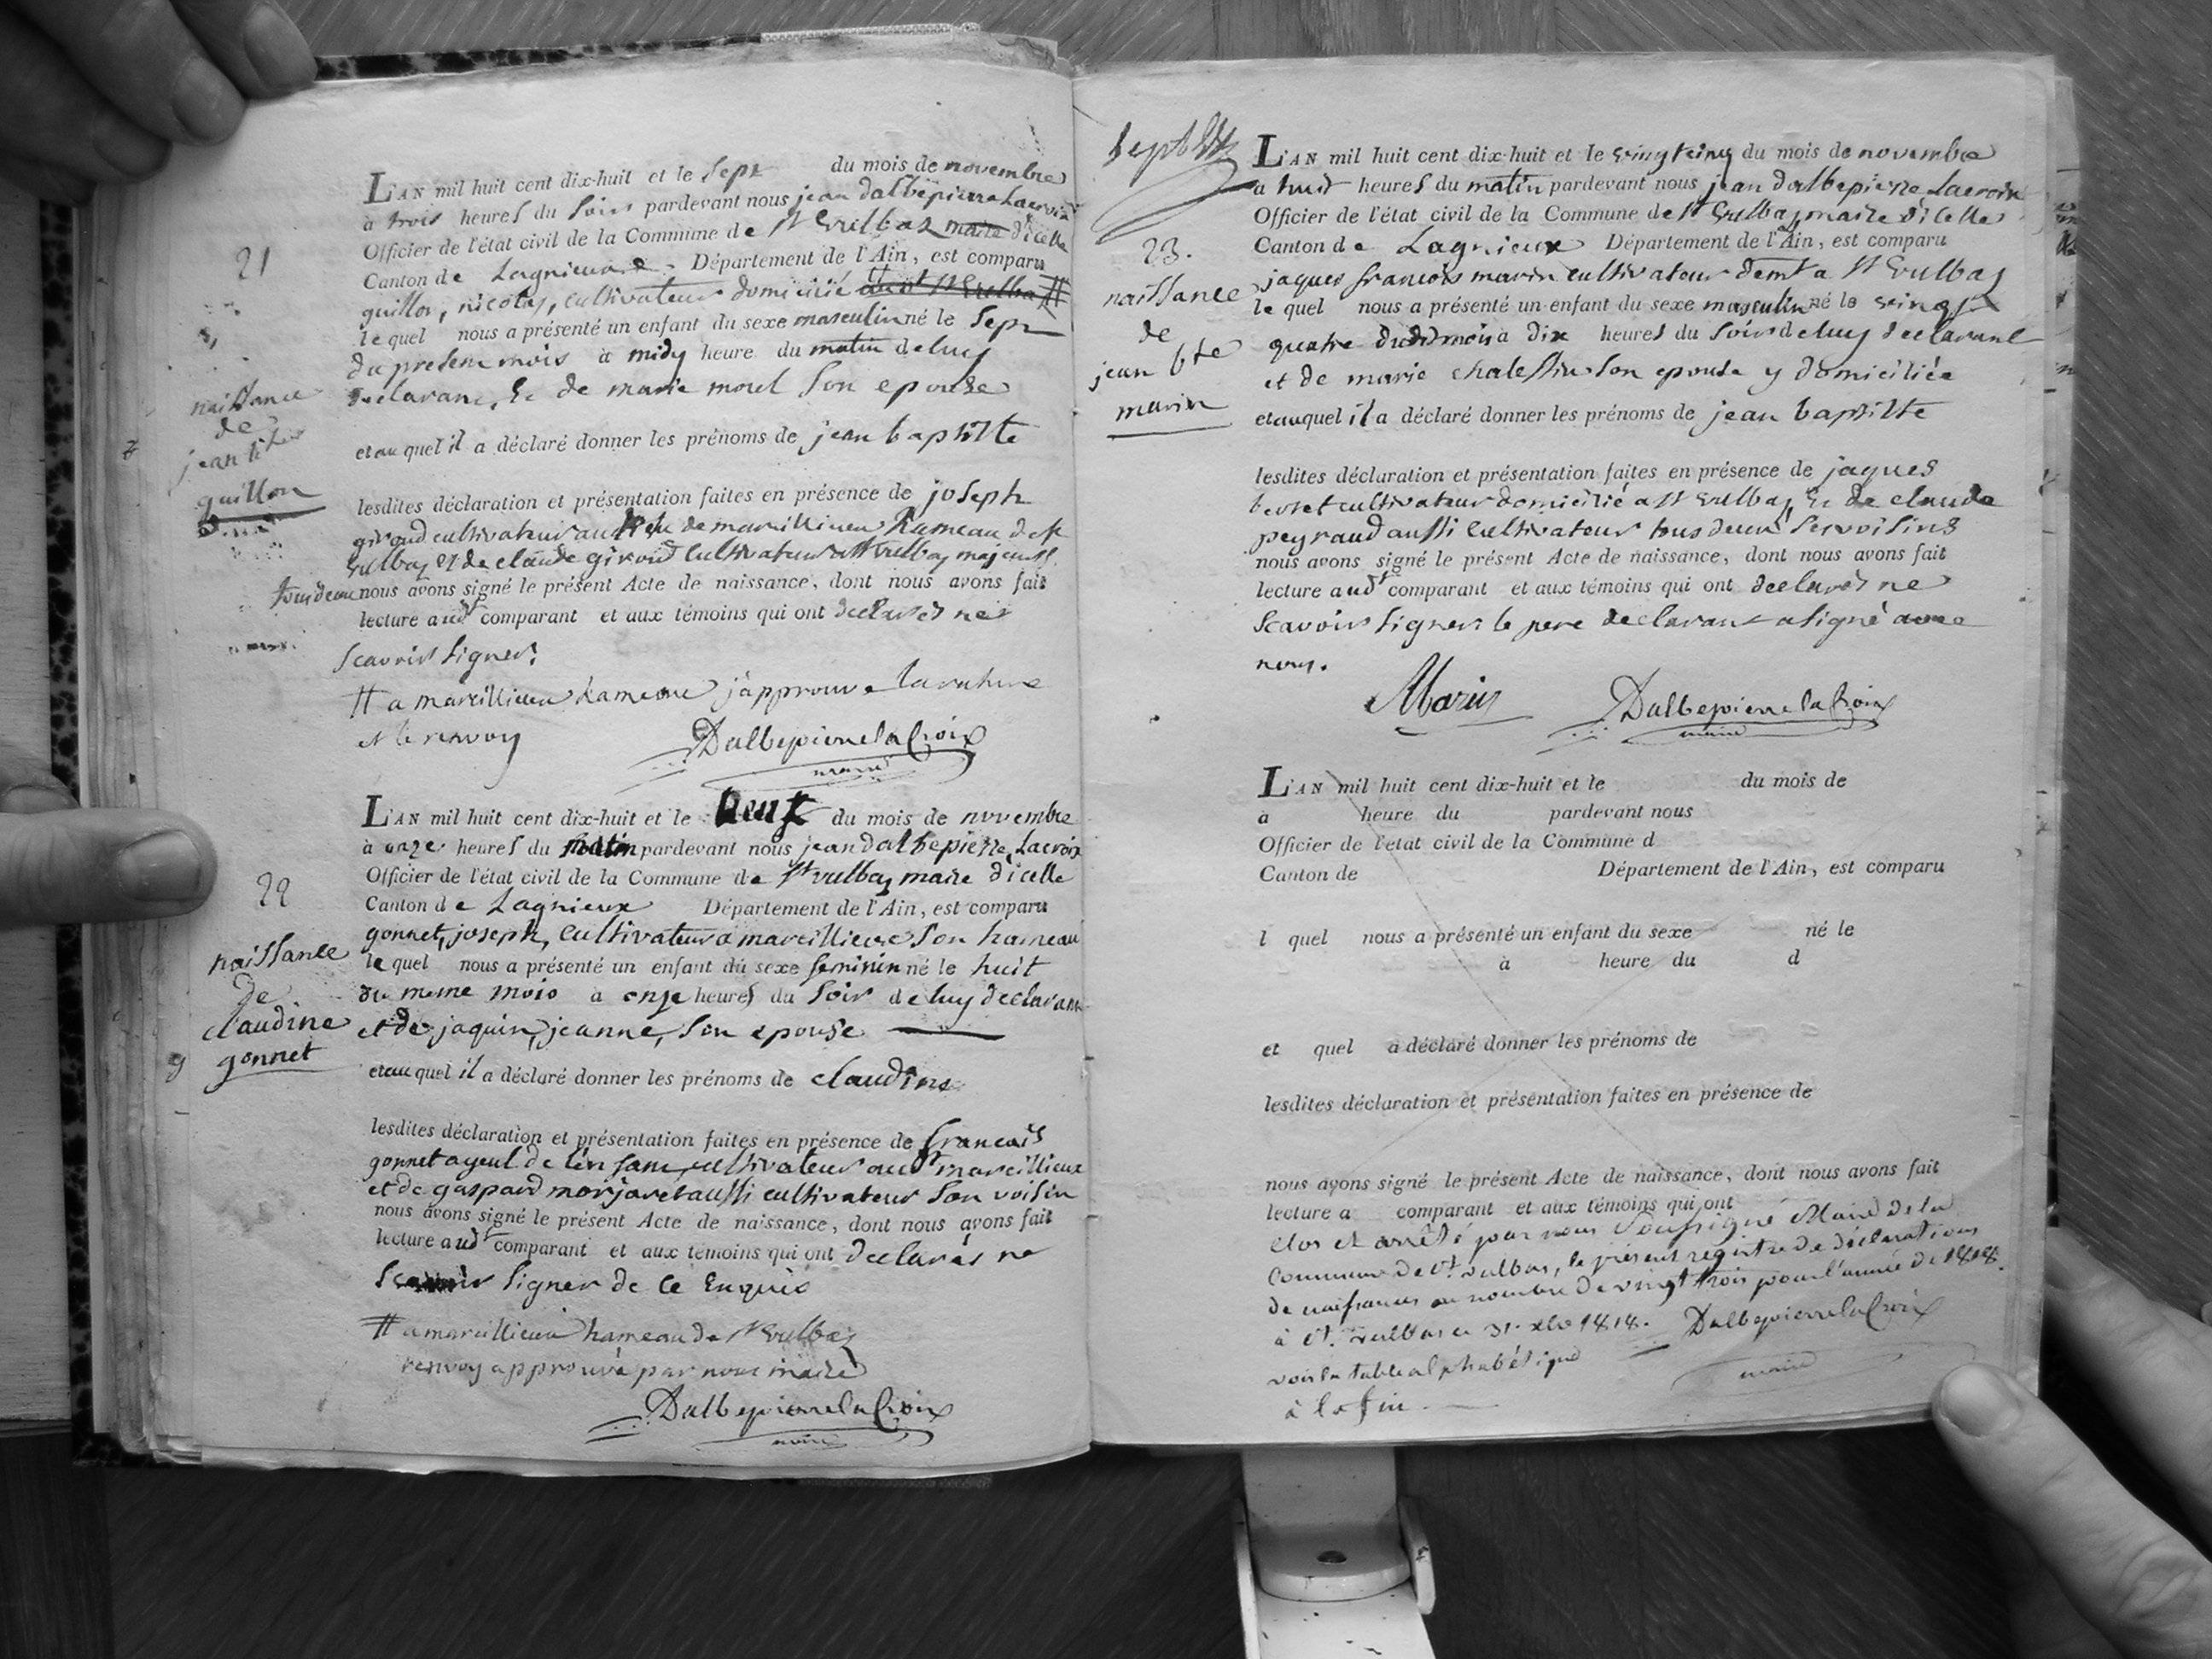 21
naissance
de
jean bte
guillon
L'AN mil huit cent dix-huit et le sept du mois de novembre
à trois heures du soir pardevant nous jean dalbepierre Lacroix
Officier de l'état civil de la Commune de St Vulbaz maire d'icelle
Canton de Lagnieux Département de l'Ain, est comparu
guillon, nicolas, cultivateur domicilié audt St Vulba #
le quel nous a présenté un enfant du sexe masculin né le sept
du present mois à midy heure du matin de luy
declarant, Et de marie morel son epouse
et au quel il a déclaré donner les prénoms de jean baptiste
lesdites déclaration et présentation faites en présence de joseph
giroud cultivateur audt de marcillieux hameau de St
Vulbaz et de claude giroud cultivateur a St Vulbaz majeurs
tous deux nous avons signé le présent Acte de naissance, dont nous avons fait
lecture audt comparant et aux témoins qui ont declarés ne
scavoir signer.
# a marcillieux hameau j'approuve la rature
et le renvoy
Dalbepierre la Croix
maire
22
naissance
de
claudine
gonnet
L'AN mil huit cent dix-huit et le neuf du mois de novembre
à onze heures du matin pardevant nous jean Dalbepierre Lacroix
Officier de l'état civil de la Commune de St vulbaz maire d'icelle
Canton de Lagnieux Département de l'Ain, est comparu
gonnet, joseph, cultivateur a marcillieux son hameau
le quel nous a présenté un enfant du sexe feminin né le huit
du meme mois à onze heures du soir de luy declarant
et de jaquin, jeanne, son epouse
et au quel il a déclaré donner les prénoms de claudine
lesdites déclaration et présentation faites en présence de francois
gonnet ayeul de l'enfant, cultivateur audt marcillieux
et de gaspard morjaret aussi cultivateur son voisin
nous avons signé le présent Acte de naissance, dont nous avons fait
lecture audt comparant et aux témoins qui ont declarés ne
scavoir signer de ce enquis
# a marcillieux hameau de St Vulbaz
renvoy approuvé par nous maire
Dalbepierre la Croix
maire
23.
naissance
de
jean bte
marin
L'AN mil huit cent dix-huit et le vingt cinq du mois de novembre
à huit heures du matin pardevant nous jean dalbepierre Lacroix
Officier de l'état civil de la Commune de St Vulbaz maire d'icelle
Canton de Lagnieux Département de l'Ain, est comparu
jaques francois marin cultivateur demt a St Vulbaz
le quel nous a présenté un enfant du sexe masculin né le vingt
quatre dudt mois à dix heures du soir de luy declarant
et de marie chalessin son epouse y domiciliée
et auquel il a déclaré donner les prénoms de jean baptiste
lesdites déclaration et présentation faites en présence de jaques
cultivateur domicilié a St Vulbaz, Et de claude
peyraud aussi cultivateur tous deux ses voisins
nous avons signé le présent Acte de naissance, dont nous avons fait
lecture audt comparant et aux témoins qui ont declarés ne
scavoir signer le pere declarant a signé avec
nous.
Marin Dalbepierre la Croix
maire
L'AN mil huit cent dix-huit et le du mois de
à heure du pardevant nous
Officier de l'état civil de la Commune d
Canton de Département de l'Ain, est comparu
l quel nous a présenté un enfant du sexe né le
à heure du d
et quel a déclaré donner les prénoms de
lesdites déclaration et présentation faites en présence de
nous avons signé le présent Acte de naissance, dont nous avons fait
lecture a comparant et aux témoins qui ont
Clos et arrêté par nous Soussigné Maire de la
Commune de St. Vulbas, le présent registre de déclarations
de naissances au nombre de vingt trois pour l'année de 1818.
à St. Vulbas ce 31 xbre 1818. Dalbepierre la Croix
maire
voir la table alphabétique
à la fin.